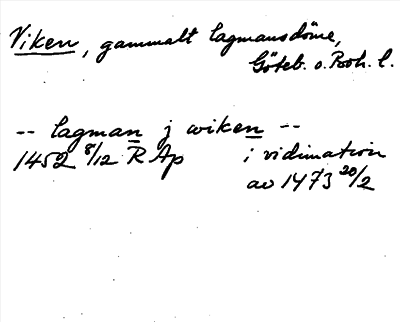 Viken, gammalt lagmansdöme,
Göteb. o. Boh. l.
-- lagman j wiken --
1452 8/12 R Ap i vidimation
av 1473 20/2